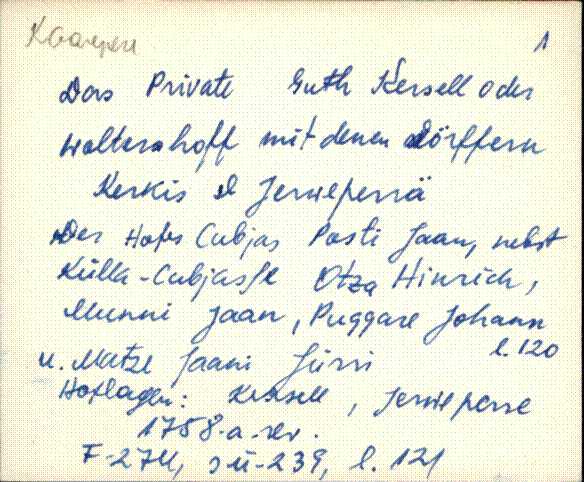 Kaarepere
1
Das Private Guth Kersell oder
Waltershoff mit denen dörffern
Kerkis d Jerwepersä
Der Hofs Cubjas Posti Jaan, nebst
Külla-Cubjasse Otza Hinrich,
Munni Jaan, Puggare Johann
l. 120
u. Matze Jaani Jürri
Hoflagen: Kersell, Jerwepere
1758-a. rev.
F-274, sü-239, l. 121